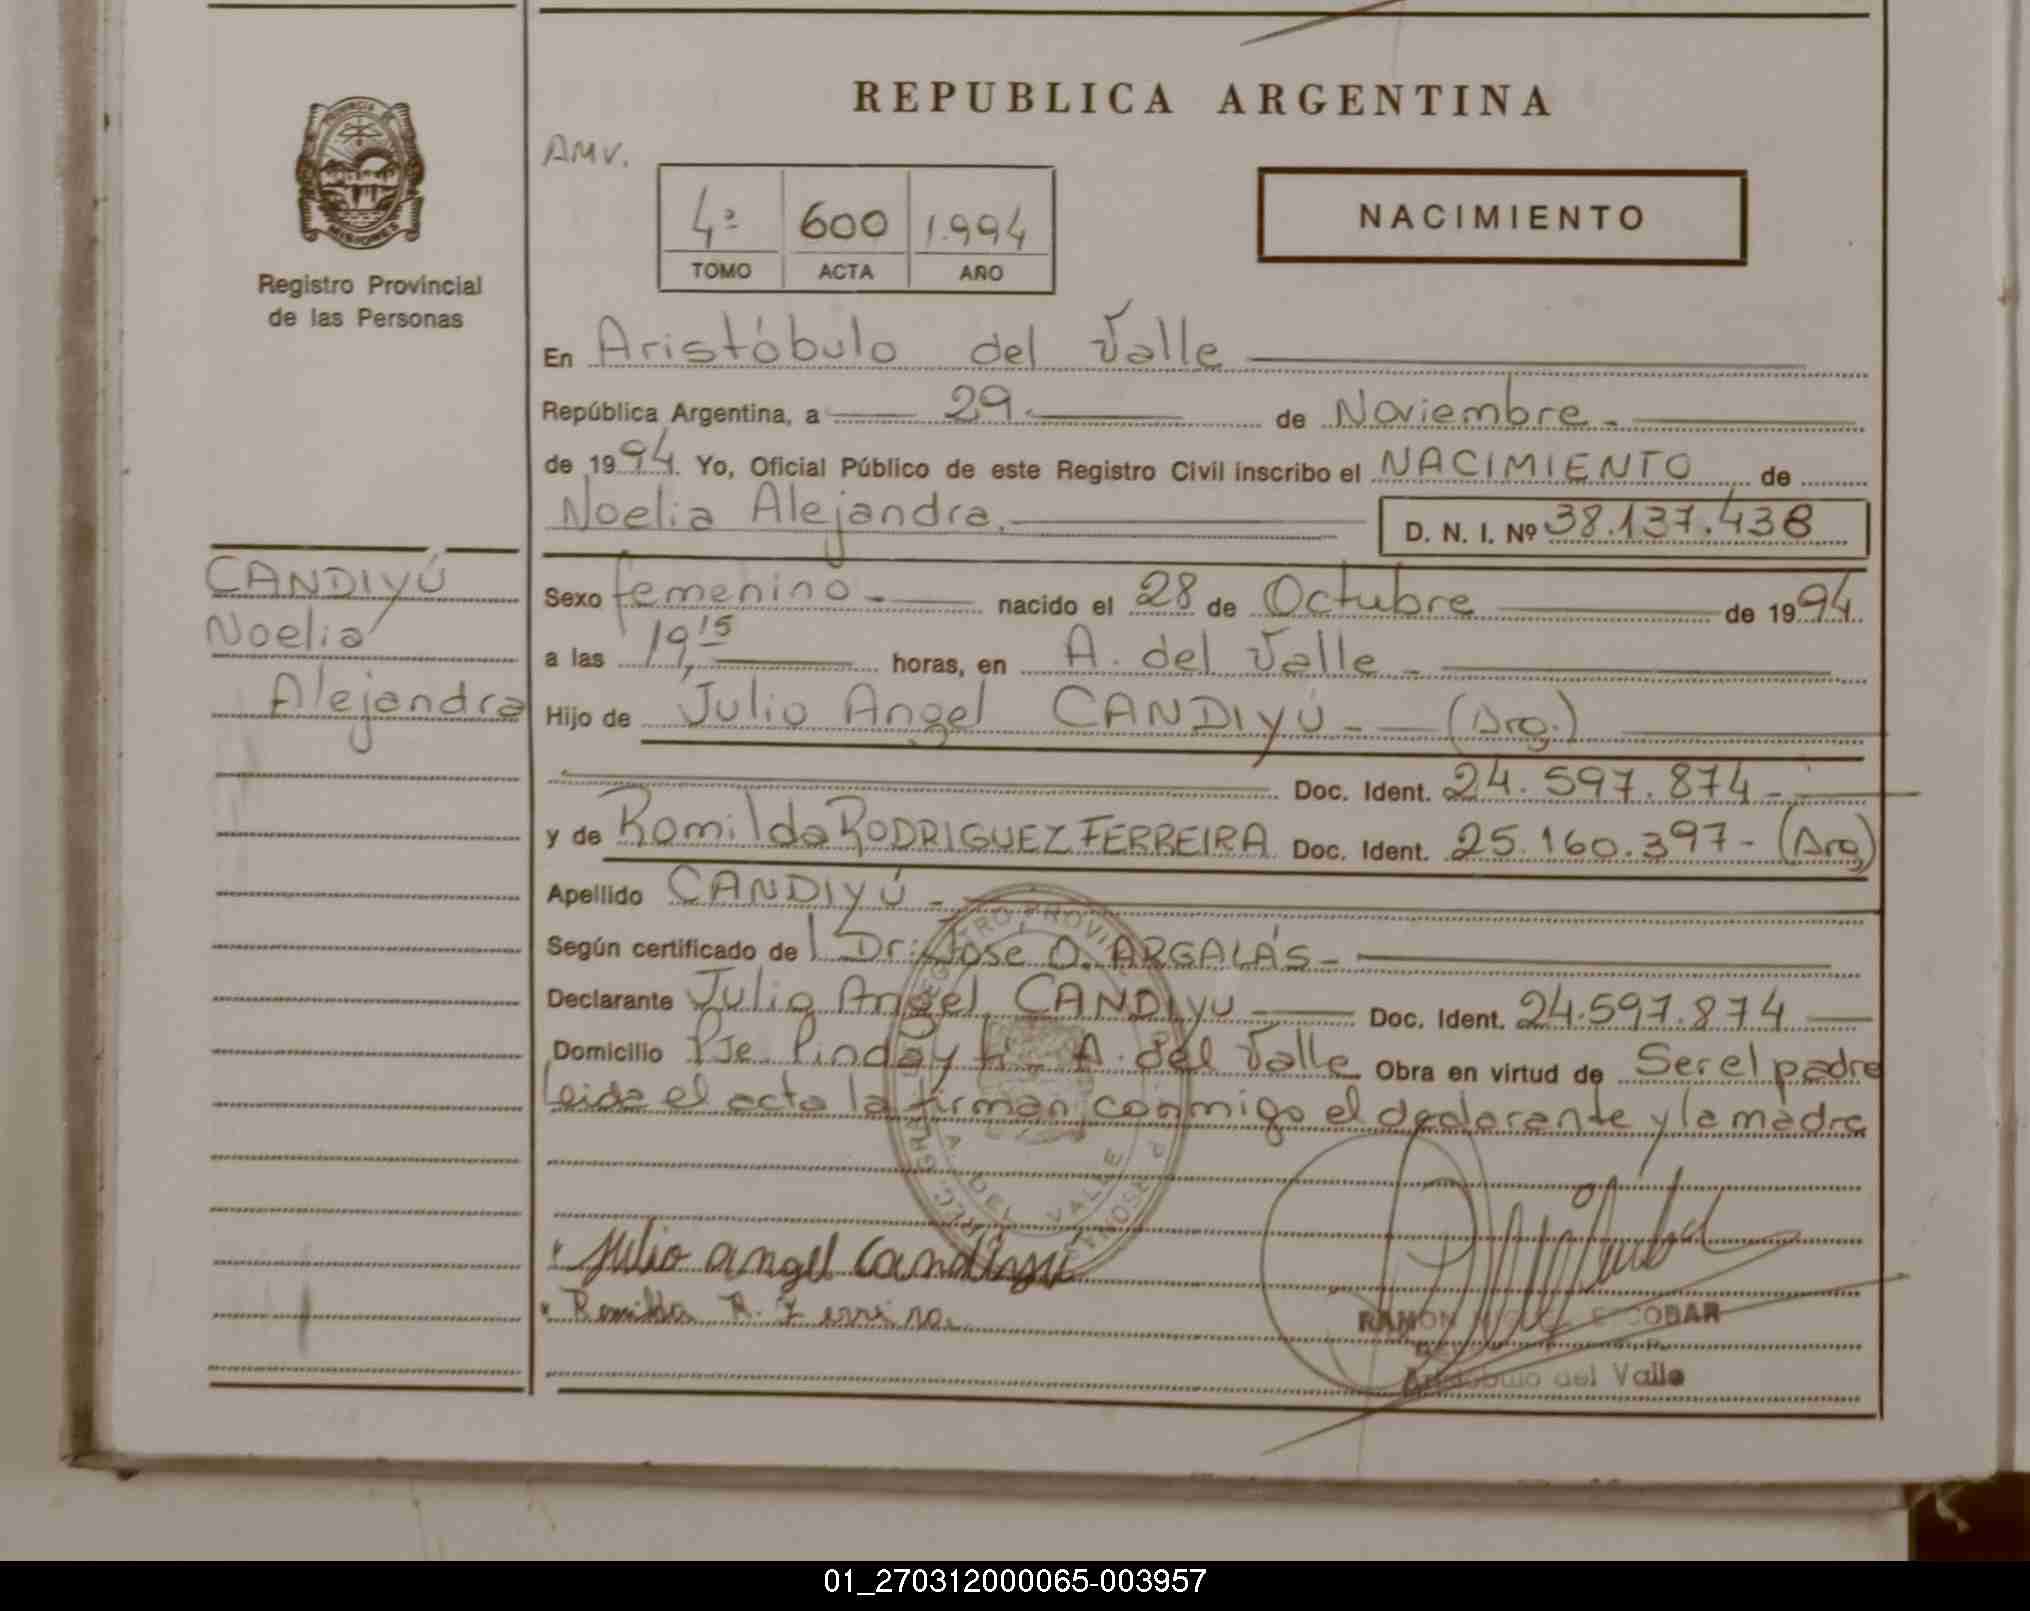 REPUBLICA ARGENTINA
PROVINCIA DE
MISIONES
Registro Provincial
de las Personas
AMV.
4º 600 1.994
TOMO ACTA AÑO
NACIMIENTO
En Aristóbulo del Valle
República Argentina, a 29 de Noviembre
de 1994. Yo, Oficial Público de este Registro Civil inscribo el NACIMIENTO de
Noelia Alejandra. D. N. I. Nº 38.137.438
CANDIYÚ
Noelia
Alejandra
Sexo femenino nacido el 28 de Octubre de 1994
a las 19,15 horas, en A. del Valle
Hijo de Julio Angel CANDIYÚ (Arg.)
Doc. Ident. 24.597.874
y de Romilda RODRIGUEZ FERREIRA Doc. Ident. 25.160.397 - (Arg)
Apellido CANDIYÚ
Según certificado de Dr: Jose O. ARGALÁS
Declarante Julio Angel CANDIYU Doc. Ident. 24.597.874
Domicilio Pje. Pindayti A. del Valle Obra en virtud de Ser el padre
Leida el acta la firman conmigo el declarante y la madre
A. DEL VALLE
Julio angel Candiyú
Romilda R. Ferreira
RAMON ESCOBAR
Aristóbulo del Valle
01_270312000065-003957